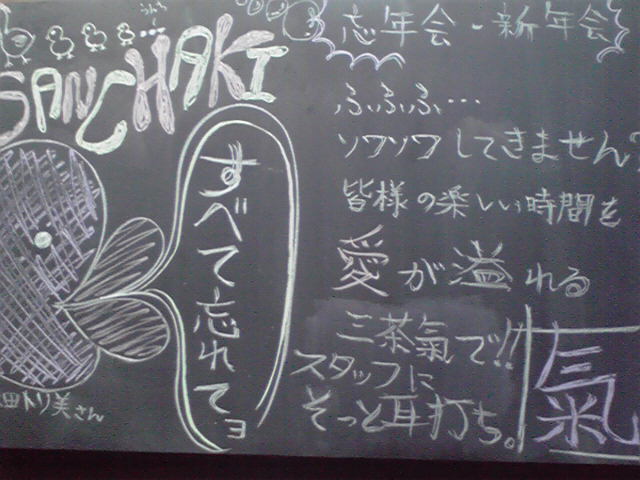 SANCHAKI
忘年会-新年会
ふふふ…
ソワソワしてきません?
皆様の楽しい時間を
愛が溢れる
三茶氣で!!
スタッフに
そっと耳打ち。
すべて忘れてョ
田トリ美さん
氣